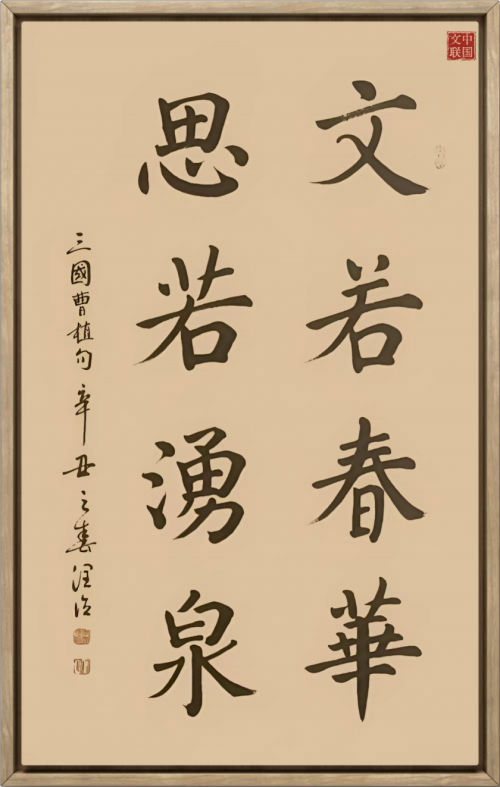 中国
文联
文若春華
思若湧泉
三國曹植句辛丑之春